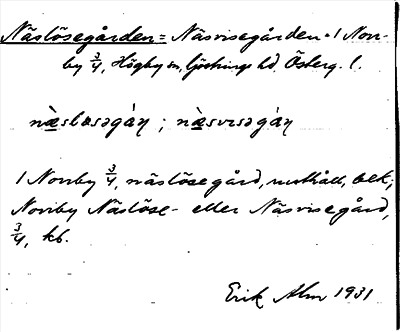 Näslösegården = Näsvisegården = 1 Norr-
by 3/4, Högby sn, Göstrings hd Österg. l.
næ̀sløsəgáɳ ; næ̀svɪsəgáɳ
1 Norrby 3/4, näslöse gård, mthåll, bek;
Norrby Näslöse- eller Näsvisegård,
3/4, kb.
Erik Alm 1931